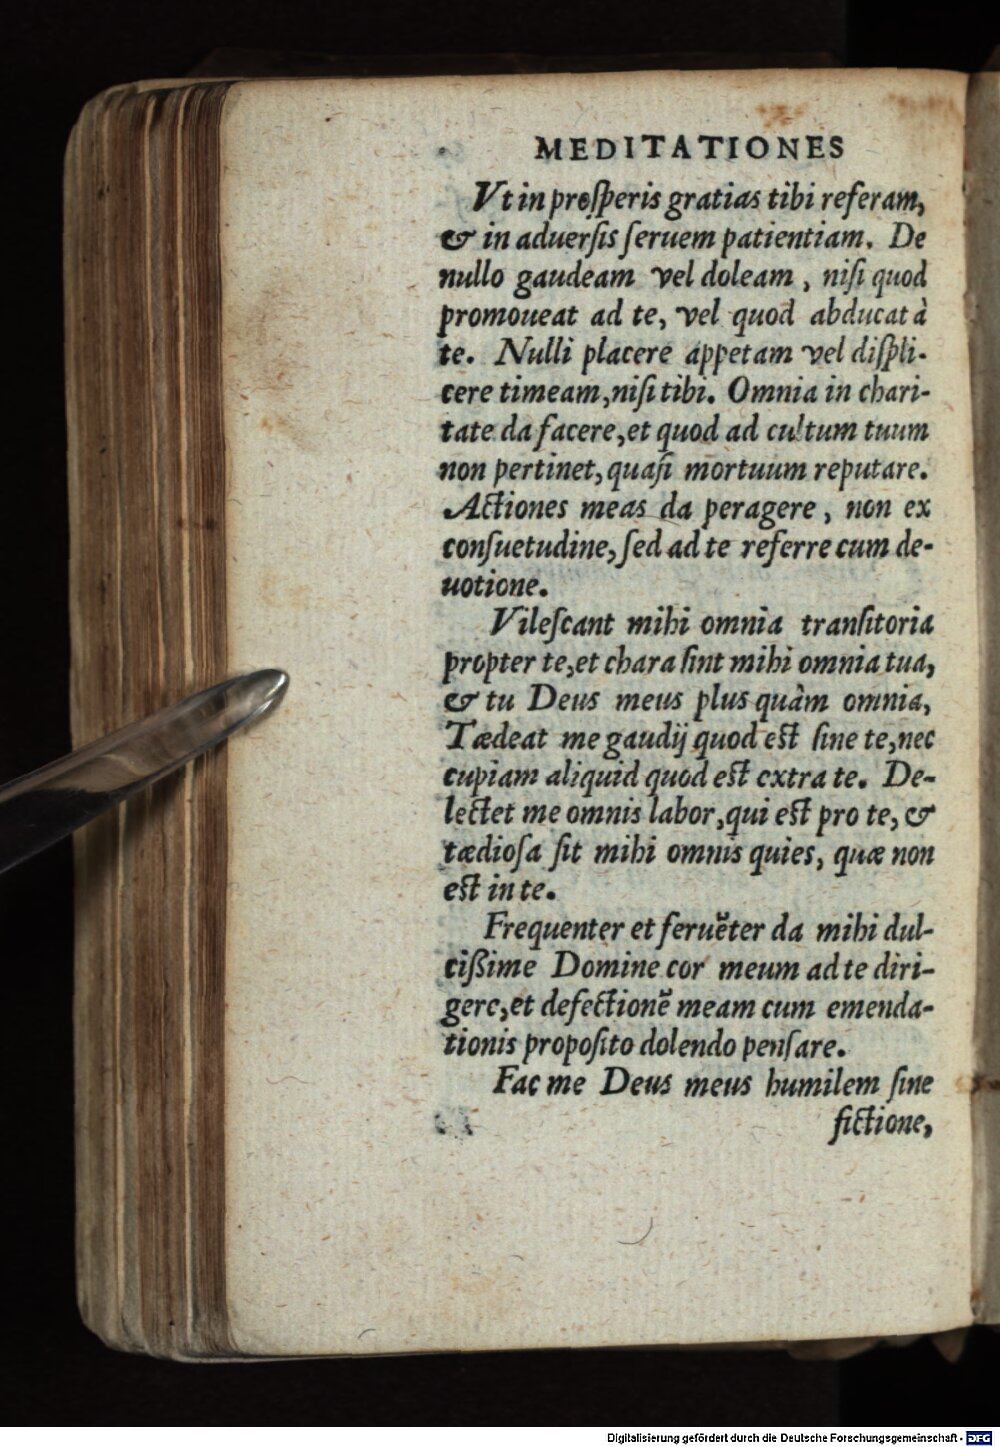 MEDITATIONES
Vt in proſperis gratias tibi referam,
& in aduerſis ſeruem patientiam. De
nullo gaudeam vel doleam, niſi quod
promoueat ad te, vel quod abducat à
te. Nulli placere appetam vel diſpli-
cere timeam, niſi tibi. Omnia in chari-
tate da facere, et quod ad cultum tuum
non pertinet, quaſi mortuum reputare.
Actiones meas da peragere, non ex
conſuetudine, ſed ad te referre cum de-
uotione.
Vileſcant mihi omnia tranſitoria
propter te, et chara ſint mihi omnia tua,
& tu Deus meus plus quàm omnia,
Tædeat me gaudij quod eſt ſine te, nec
cupiam aliquid quod eſt extra te. De-
lectet me omnis labor, qui eſt pro te, &
tædioſa ſit mihi omnis quies, quæ non
eſt in te.
Frequenter et feruẽter da mihi dul-
cißime Domine cor meum ad te diri-
gere, et defectionẽ meam cum emenda-
tionis propoſito dolendo penſare.
Fac me Deus meus humilem ſine
fictione,
Digitalisierung gefördert durch die Deutsche Forschungsgemeinschaft - DFG